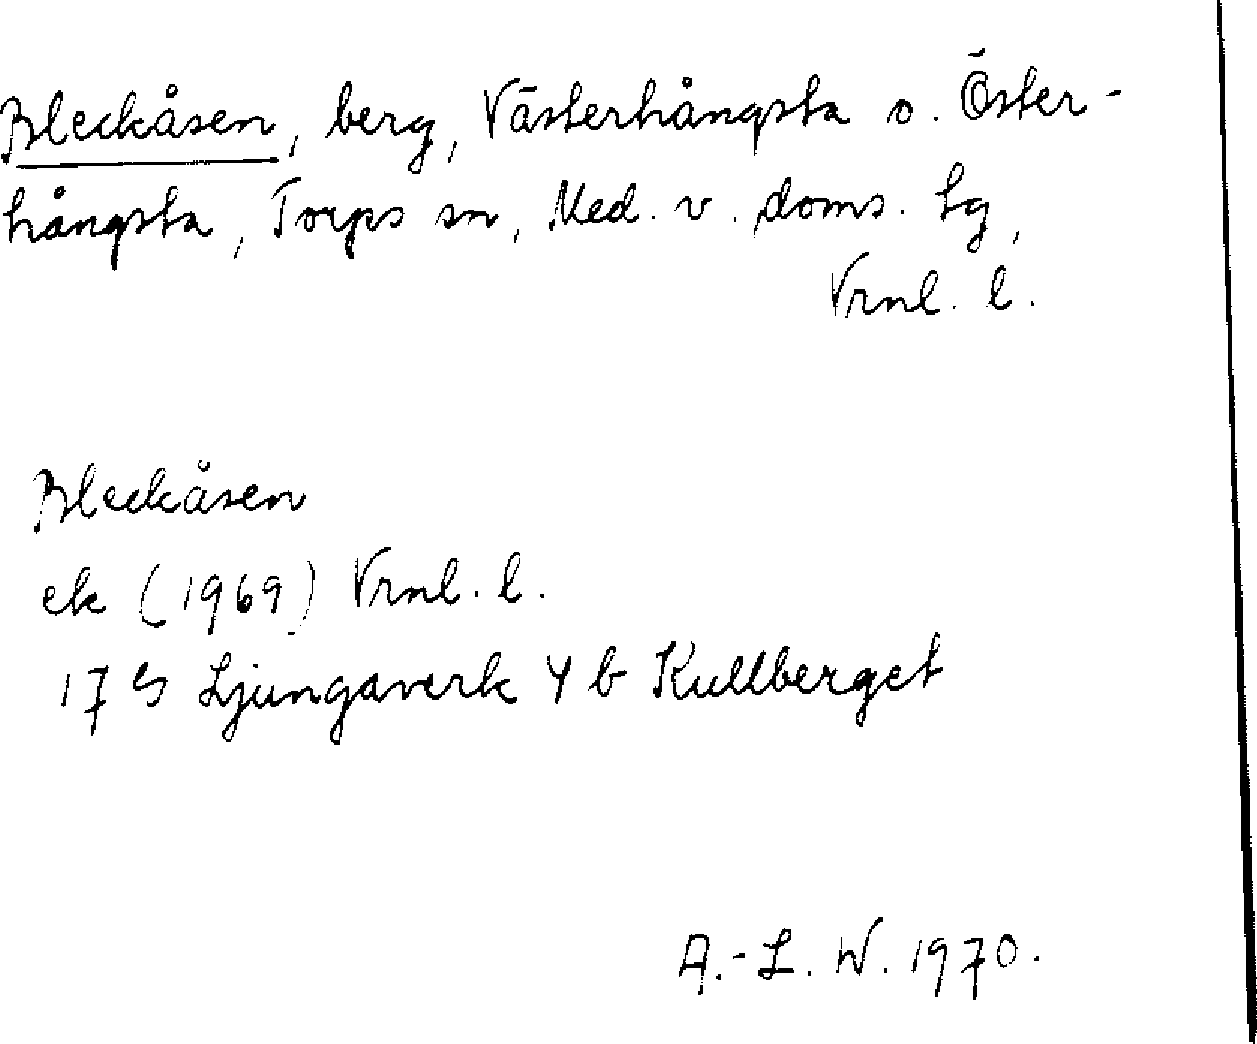 Bleckåsen, berg, Västerhångsta o. Öster-
hångsta, Torps sn, Med. v. doms. tg,
Vrnl. l.
Bleckåsen
ek (1969) Vrnl. l.
17 G Ljungaverk 4 b Kullberget
A.-L. W. 1970.